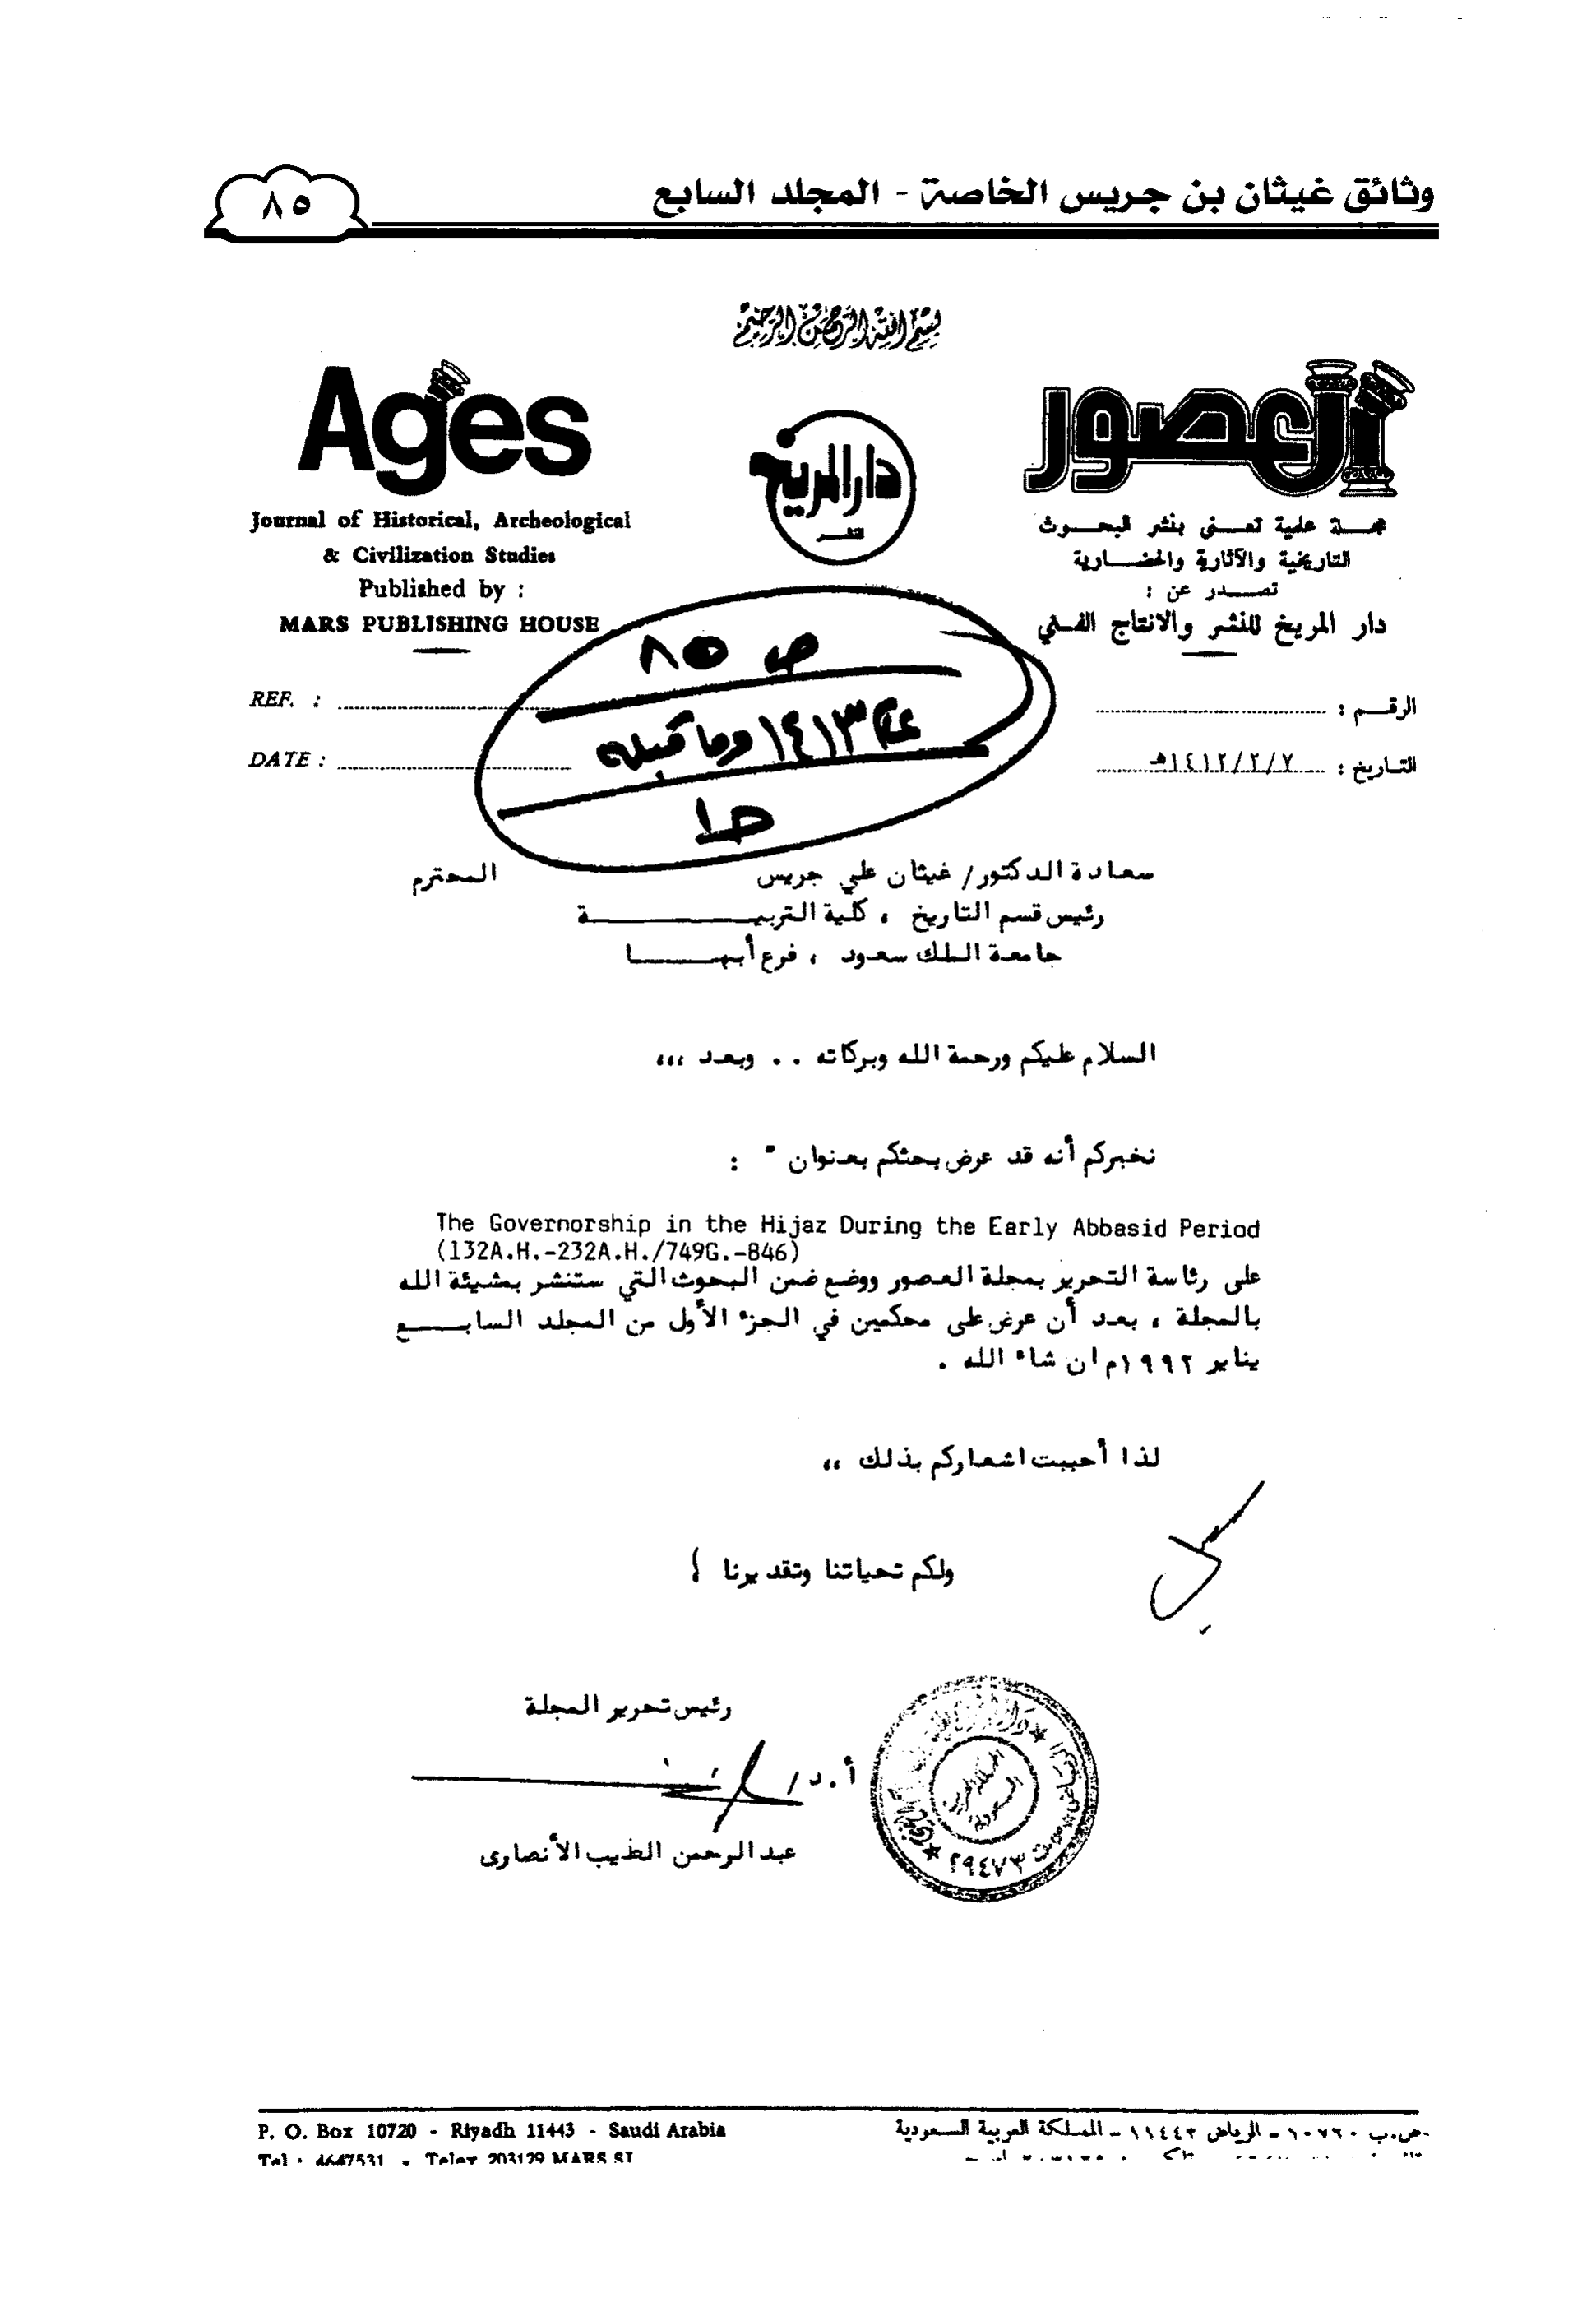 وثائق غيثان بن جريس الخاصة - المجلد السابع
٨٥
بسم الله الرحمن الرحيم
Ages
Journal of Historical, Archeological
& Civilization Studies
Published by :
MARS PUBLISHING HOUSE
REF. :
DATE :
دار المريخ
للنشر
العصور
مجلة علمية تعنى بنشر البحوث
التاريخية والآثارية والحضارية
تصدر عن :
دار المريخ للنشر والانتاج الفني
الرقم :
التاريخ : ١٤١٢/٢/٧هـ
ص ٨٥
١٤١٣ وما قبله
ج١
سعادة الدكتور/ غيثان علي جريس المحترم
رئيس قسم التاريخ ، كلية التربية
جامعة الملك سعود ، فرع أبها
السلام عليكم ورحمة الله وبركاته . . وبعد ،،،
نخبركم أنه قد عرض بحثكم بعنوان " :
The Governorship in the Hijaz During the Early Abbasid Period
(132A.H.-232A.H./749G.-846)
على رئاسة التحرير بمجلة العصور ووضع ضمن البحوث التي ستنشر بمشيئة الله
بالمجلة ، بعد أن عرض على محكمين في الجزء الأول من المجلد السابع
يناير ١٩٩٢م ان شاء الله .
لذا أحببت اشعاركم بذلك ،،
ولكم تحياتنا وتقديرنا
رئيس تحرير المجلة
أ.د/
عبد الرحمن الطيب الأنصارى
المملكة العربية
السعودية
٢٩٤٧٣
P. O. Box 10720 - Riyadh 11443 - Saudi Arabia
Tel : 4647531 - Telex 203129 MARS SJ
ص.ب ١٠٧٢٠ - الرياض ١١٤٤٣ - المملكة العربية السعودية